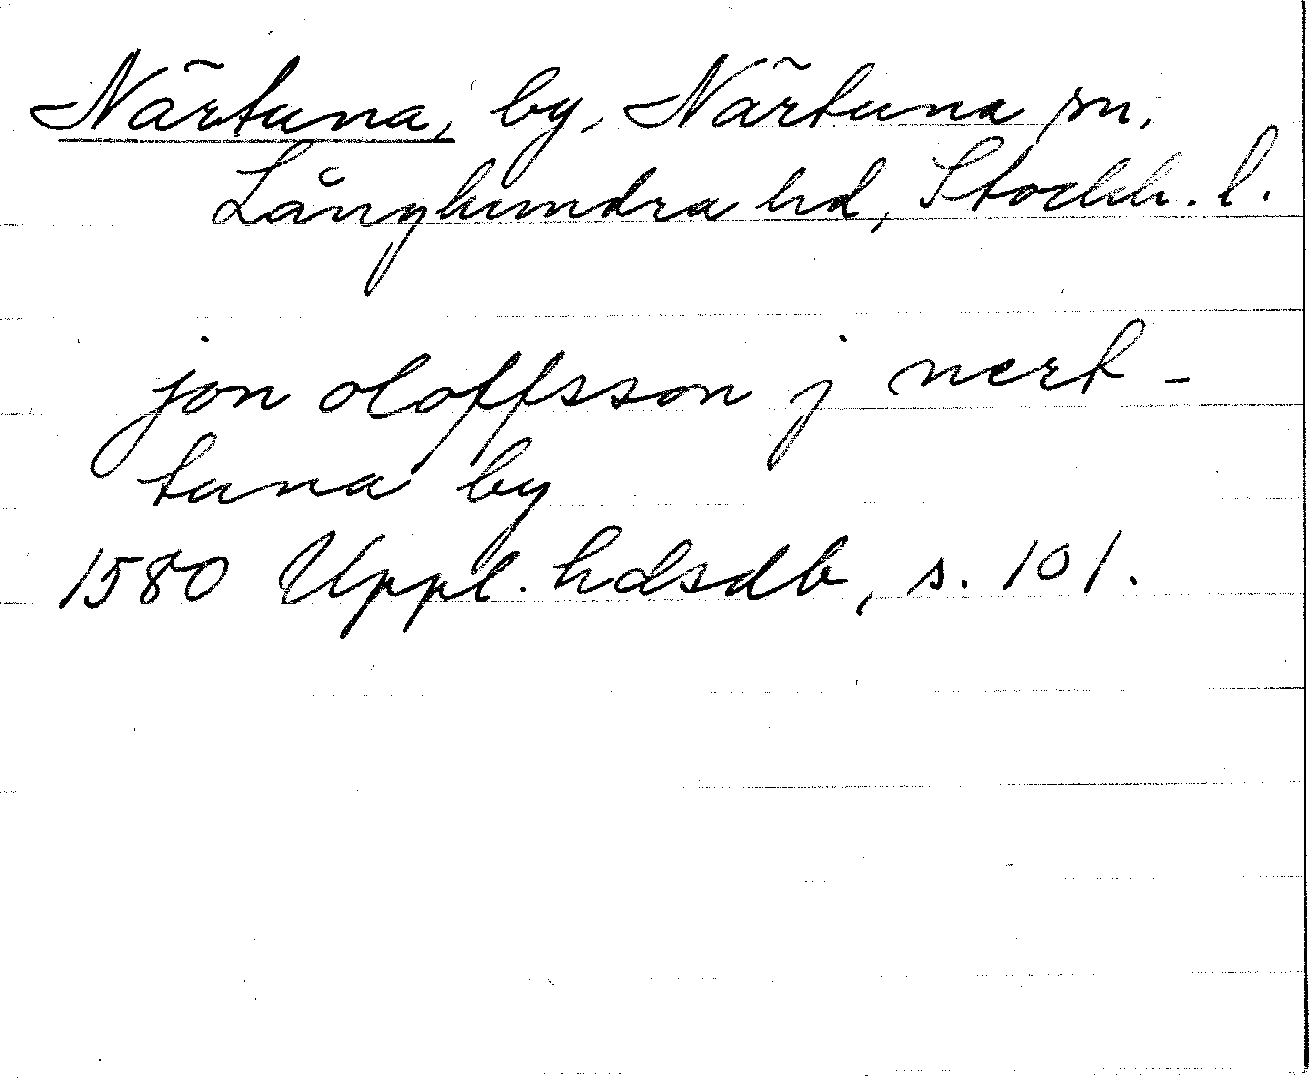 Närtuna, by, Närtuna sn,
Långhundra hd, Stockh. l.
jon oloffsson j nert-
tuna by
1580 Uppl. hdsdb, s. 101.